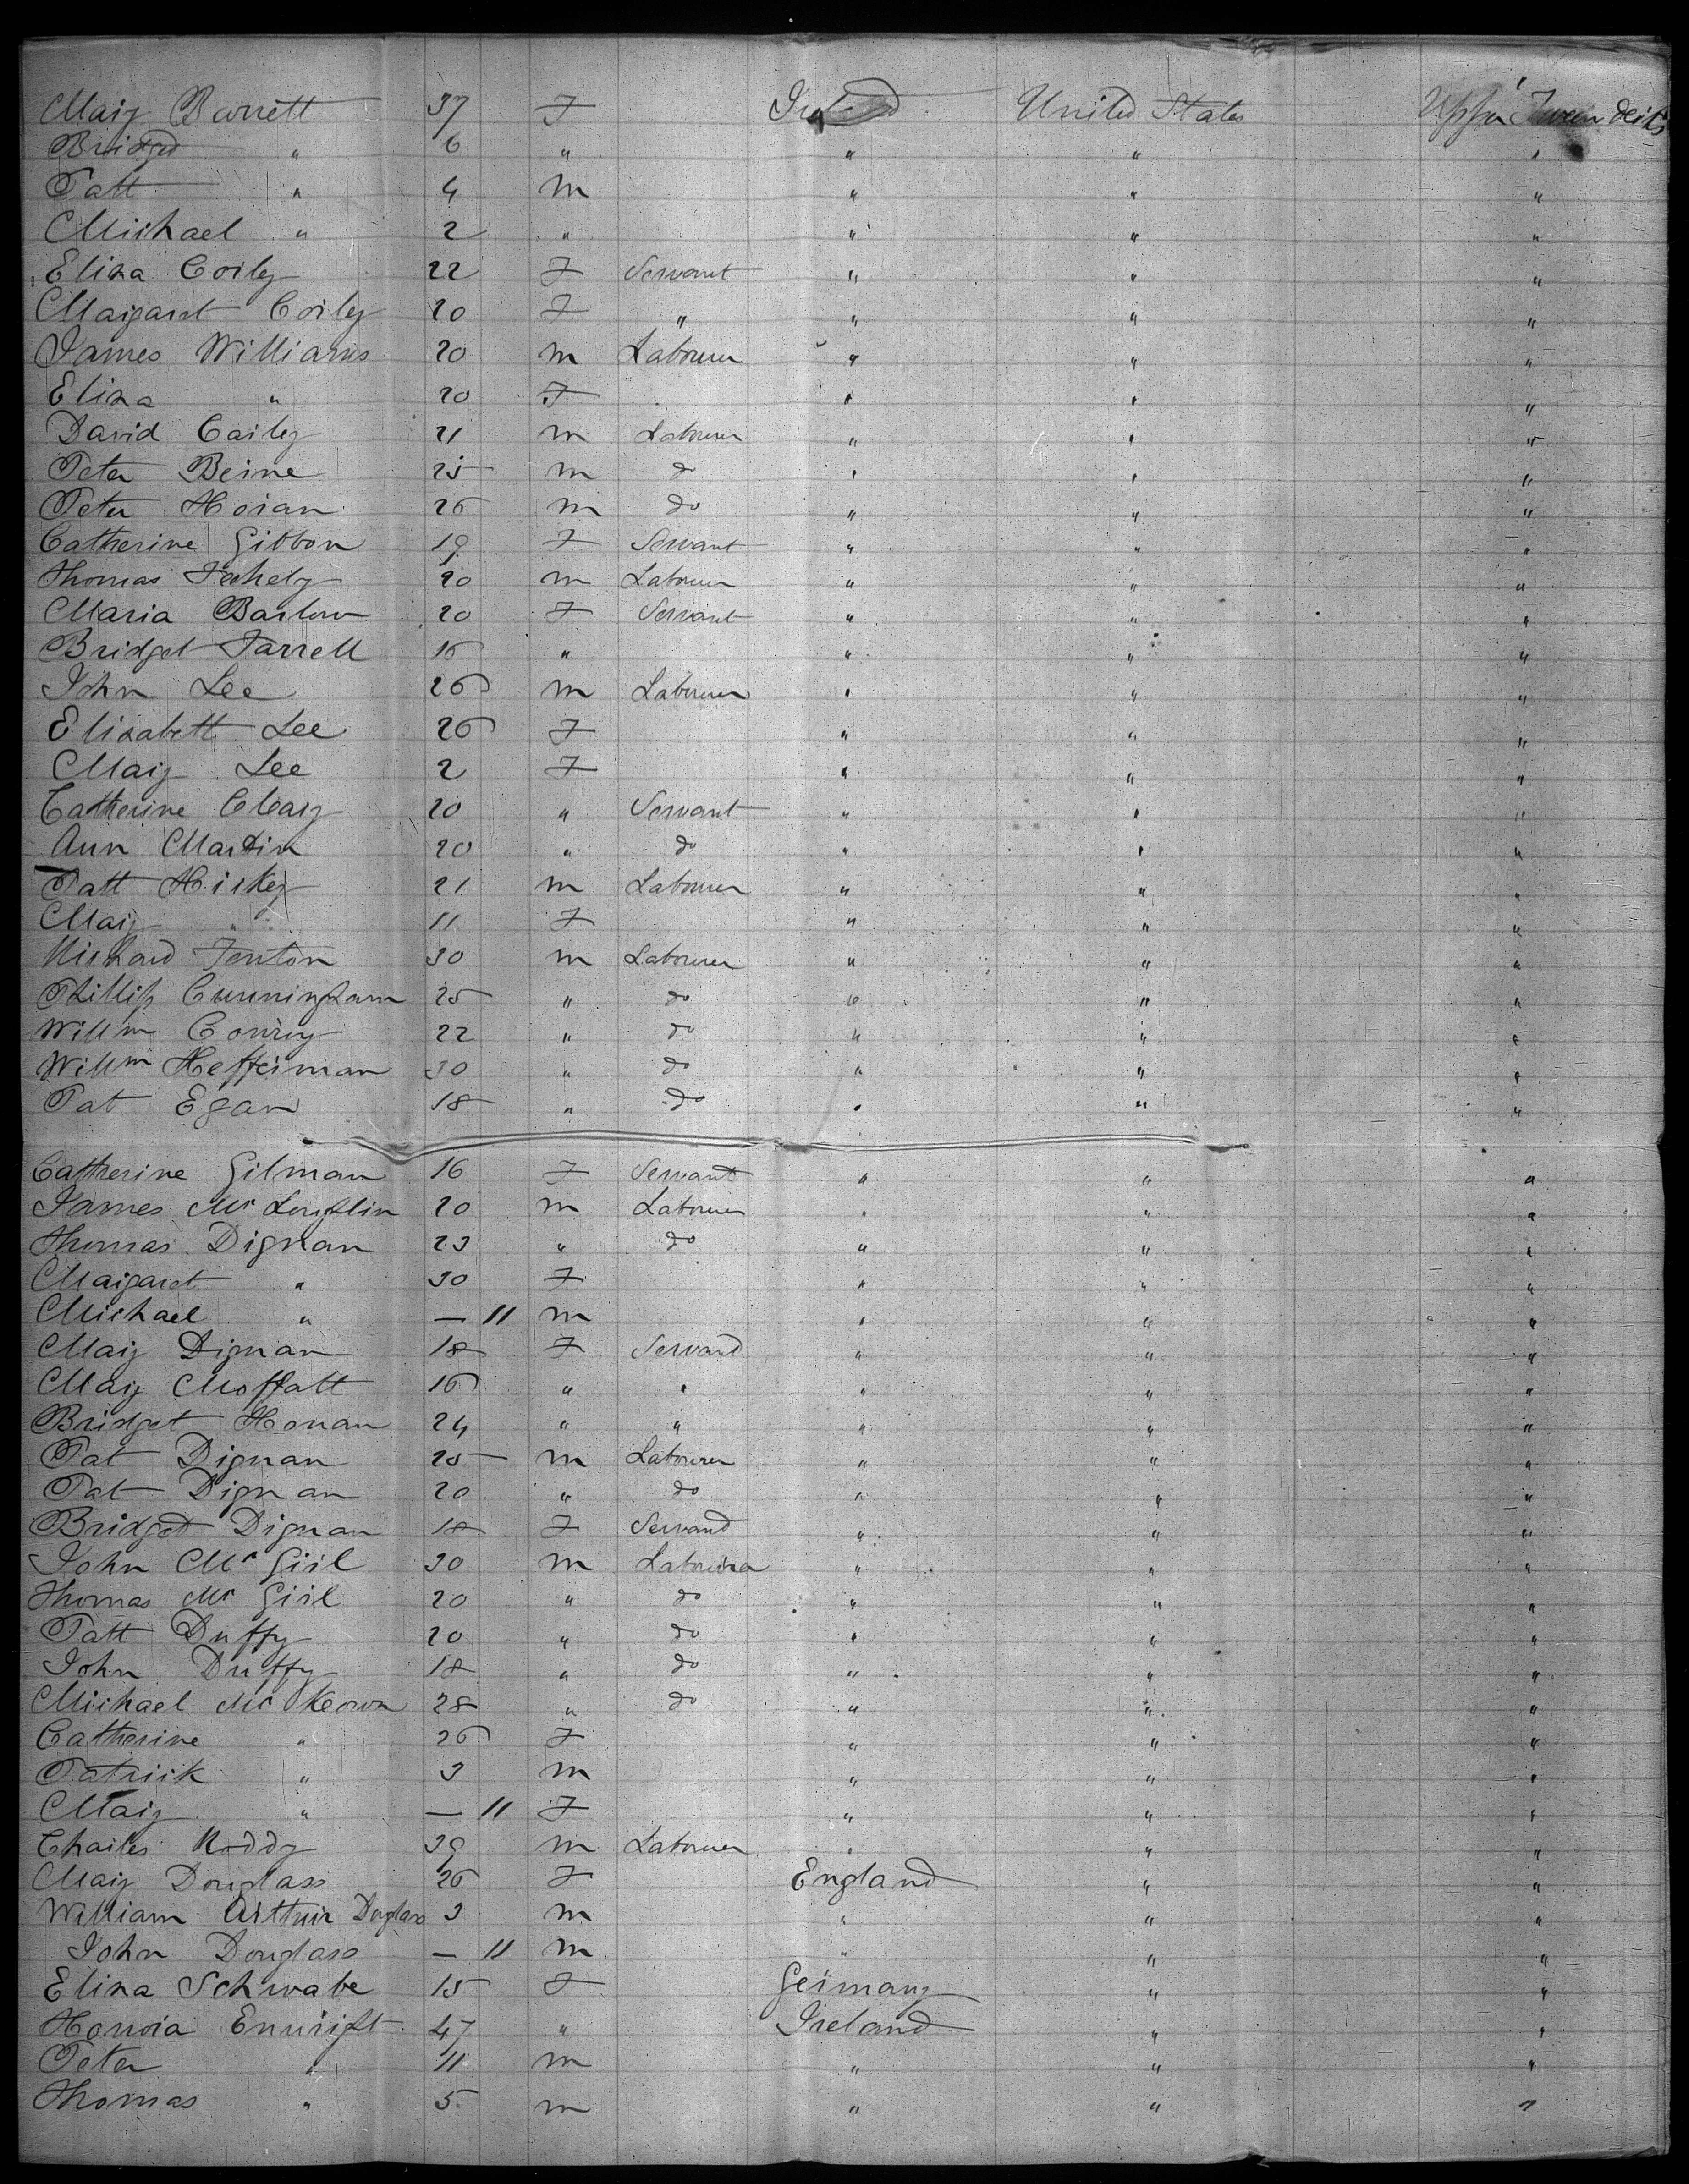 Mary Barrett 37 F Ireland United States Upper Tween decks
Bridget " 6 " " " "
Patt " 4 m " " "
Michael " 2 " " " "
Eliza Corley 22 F Servant " " "
Margaret Corley 20 F " " " "
James Williams 20 m Labourer " " "
Eliza " 20 F " " "
David Carley 21 m Labourer " " "
Peter Beirne 25 m do " " "
Peter Horan 26 m do " " "
Catherine Gibbon 19 F Servant " " "
Thomas Fahely 20 m Labourer " " "
Maria Barlow 20 F Servant " " "
Bridget Farrell 16 " " " "
John Lee 26 m Labourer " " "
Elizabett Lee 26 F " " "
Mary Lee 2 F " " "
Catherine Cleary 20 " Servant " " "
Ann Martin 20 " do " " "
Patt Hickey 21 m Labourer " " "
Mary " 11 F " " "
Richard Fenton 30 m Labourer " " "
Phillip Cunningham 25 " do " " "
Willm Conroy 22 " do " " "
Willm Heffernan 30 " do " " "
Pat Egan 18 " do " " "
Catherine Gilman 16 F Servant " " "
James McLoughlin 20 m Labourer " " "
Thomas Dignan 23 " do " " "
Margaret " 30 F " " "
Michael " — 11 m " " "
Mary Dignan 18 F Servand " " "
Mary Moffatt 16 " " " " "
Bridget Honan 24 " " " " "
Pat Dignan 25 m Labourer " " "
Pat Dignan 20 " do " " "
Bridget Dignan 18 F Servand " " "
John Mc Girl 30 m Labourer " " "
Thomas Mc Girl 20 " do " " "
Patt Duffy 20 " do " " "
John Duffy 18 " do " " "
Michael Mc Keown 28 " do " " "
Catherine " 26 F " " "
Patrick " 3 m " " "
Mary " — 11 F " " "
Charles Roddy 39 m Labourer " " "
Mary Douglass 26 F England " "
William Arthur Douglass 3 m " " "
John Douglass — 11 m " " "
Eliza Schwabe 15 F Germany " "
Honora Enright 47 " Ireland " "
Peter " 11 m " " "
Thomas " 5 m " " "